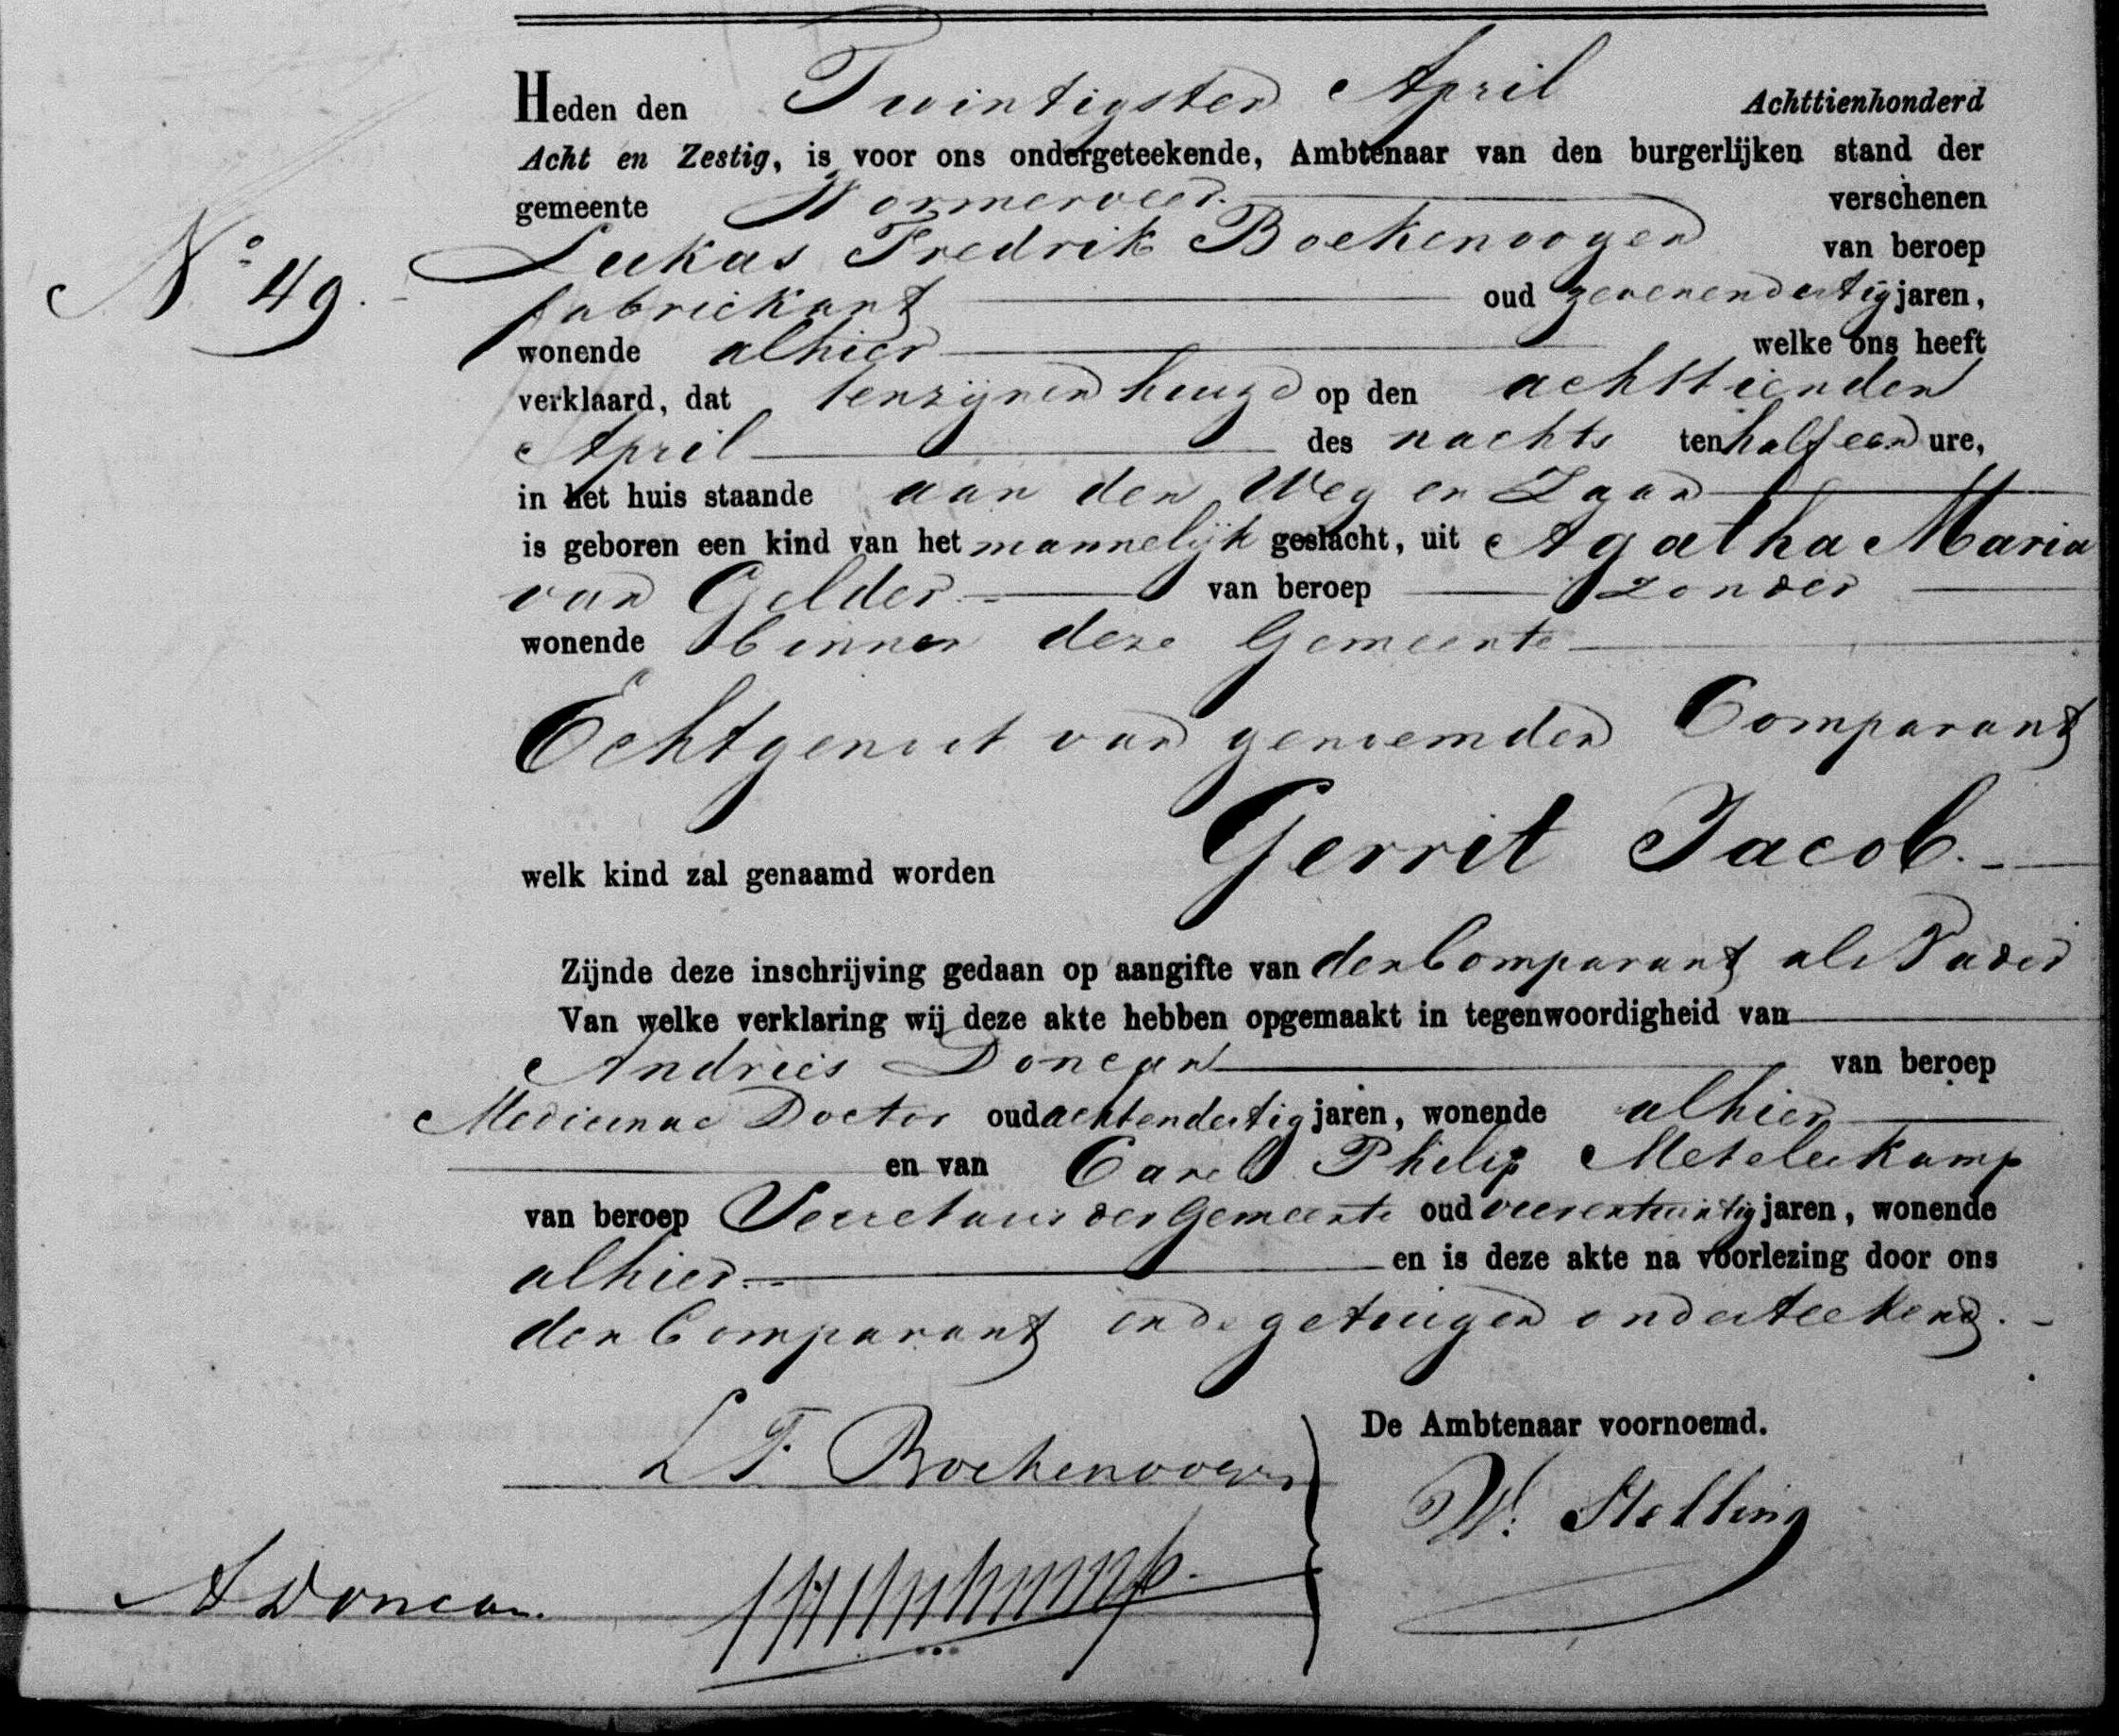 Heden den Twintigsten April Achttienhonderd
Acht en Zestig, is voor ons ondergeteekende, Ambtenaar van den burgerlijken stand der
gemeente Wormerveer. verschenen
Lukas Fredrik Boekenoogen van beroep
No 49.
fabriekant oud zevenendertig jaren,
wonende alhier welke ons heeft
verklaard, dat tenzijnen huize op den achttienden
April des nachts ten half een ure,
in het huis staande aan den Weg en Zaan
is geboren een kind van het mannelijk geslacht, uit Agatha Maria
van Gelder van beroep zonder
wonende binnen deze Gemeente
Echtgenoot van genoemden Comparant
welk kind zal genaamd worden Gerrit Jacob.
Zijnde deze inschrijving gedaan op aangifte van den Comparant als Vader
Van welke verklaring wij deze akte hebben opgemaakt in tegenwoordigheid van
Andries Doncan van beroep
Medicinae Doctor oud achtendertig jaren, wonende alhier
en van Carel Philip Metelerkamp
van beroep Secretaris der Gemeente oud vierentwintig jaren, wonende
alhier. en is deze akte na voorlezing door ons
den Comparant en de getuigen onderteekend.
De Ambtenaar voornoemd.
L F. Boekenoogen
W. Stelling
A Doncan.